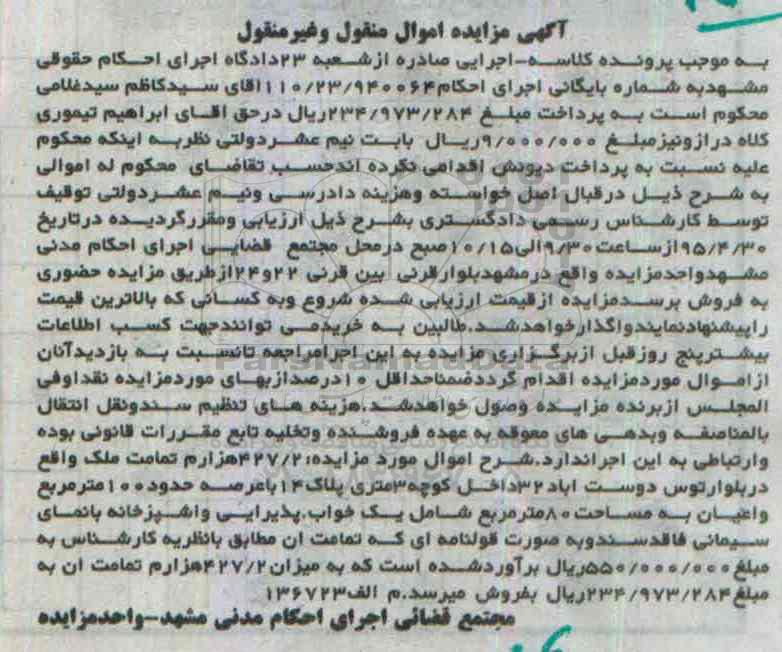 آگهی مزایده اموال منقول وغیرمنقول
به موجب پرونده کلاسه-اجرایی صادره ازشعبه ۲۳دادگاه اجرای احکام حقوقی
مشهدبه شماره بایگانی اجرای احکام۱۱۰/۲۳/۹۴۰۰۶۴اقای سیدکاظم سیدغلامی
محکوم است به پرداخت مبلغ ۲۳۴/۹۷۳/۲۸۴ریال درحق اقای ابراهیم تیموری
کلاه درازونیزمبلغ ۹/۰۰۰/۰۰۰ریال بابت نیم عشردولتی نظربه اینکه محکوم
علیه نسبت به پرداخت دیونش اقدامی نکرده اندحسب تقاضای محکوم له اموالی
به شرح ذیل درقبال اصل خواسته وهزینه دادرسی ونیم عشردولتی توقیف
توسط کارشناس رسمی دادگستری بشرح ذیل ارزیابی ومقررگردیده درتاریخ
۹۵/۴/۳۰ازساعت۹/۳۰الی۱۰/۱۵صبح درمحل مجتمع قضایی اجرای احکام مدنی
مشهدواحدمزایده واقع درمشهدبلوارقرنی بین قرنی ۲۲و۲۴ازطریق مزایده حضوری
به فروش برسدمزایده ازقیمت ارزیابی شده شروع وبه کسانی که بالاترین قیمت
راپیشنهادنمایندواگذارخواهدشد.طالبین به خریدمی توانندجهت کسب اطلاعات
بیشترپنج روزقبل ازبرگزاری مزایده به این اجرامراجعه تانسبت به بازدیدآنان
ازاموال موردمزایده اقدام گرددضمناحداقل ۱۰درصدازبهای موردمزایده نقداوفی
المجلس ازبرنده مزایده وصول خواهدشد.هزینه های تنظیم سندونقل انتقال
بالمناصفه وبدهی های معوقه به عهده فروشنده وتخلیه تابع مقررات قانونی بوده
وارتباطی به این اجراندارد.شرح اموال مورد مزایده:۴۲۷/۲هزارم تمامت ملک واقع
دربلوارتوس دوست اباد۳۲داخل کوچه۳متری پلاک۱۴باعرصه حدود۱۰۰مترمربع
واعیان به مساحت۸۰مترمربع شامل یک خواب،پذیرایی واشپزخانه بانمای
سیمانی فاقدسندوبه صورت قولنامه ای که تمامت ان مطابق بانظریه کارشناس به
مبلغ۵۵۰/۰۰۰/۰۰۰ریال برآوردشده است که به میزان۴۲۷/۲هزارم تمامت ان به
مبلغ۲۳۴/۹۷۳/۲۸۴ریال بفروش میرسد.م الف۱۳۶۷۲۳
مجتمع قضائی اجرای احکام مدنی مشهد-واحدمزایده
ParsNamadData